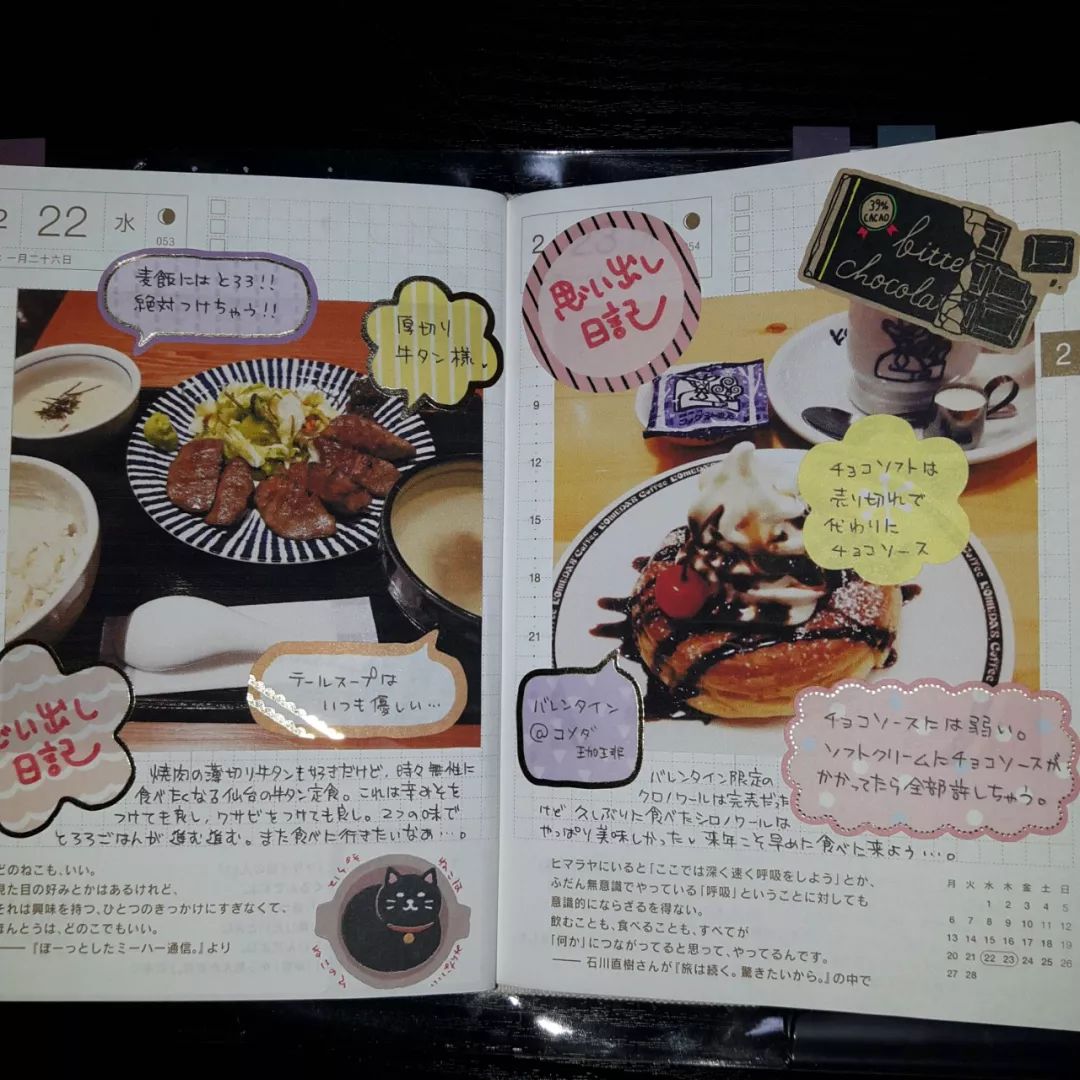 22 水
053
一月二十六日
麦飯にはとろろ!!
絶対つけちゃう!!
厚切り
牛タン様
テールスープは
いつも優しい…
思い出し
日記
焼肉の薄切り牛タンも好きだけど、時々無性に
食べたくなる仙台の牛タン定食。これは辛みそを
つけても良し、ワサビをつけても良し。2つの味で
とろろごはんが進む進む。また食べに行きたいなぁ…。
どのねこも、いい。
見た目の好みとかはあるけれど、
それは興味を持つ、ひとつのきっかけにすぎなくて、
ほんとうは、どのこでもいい。
──『ぼーっとしたミーハー通信。』より
2 23
054
思い出し
日記
39%
CACAO
bitter
chocolat
2
9
12
15
18
21
チョコソフトは
売り切れで
代わりに
チョコソース
KOMEDA'S Coffee
バレンタイン
@コメダ
珈琲
チョコソースには弱い。
ソフトクリームにチョコソースが
かかってたら全部許しちゃう。
バレンタイン限定の
クロノワールは完売だった
けど久しぶりに食べたシロノワールは
やっぱり美味しかった 来年こそ早めに食べに来よう…。
ヒマラヤにいると「ここでは深く速く呼吸をしよう」とか、
ふだん無意識でやっている「呼吸」ということに対しても
意識的にならざるを得ない。
飲むことも、食べることも、すべてが
「何か」につながってると思って、やってるんです。
── 石川直樹さんが『旅は続く。驚きたいから。』の中で
月 火 水 木 金 土 日
1 2 3 4 5
6 7 8 9 10 11 12
13 14 15 16 17 18 19
20 21 22 23 24 25 26
27 28